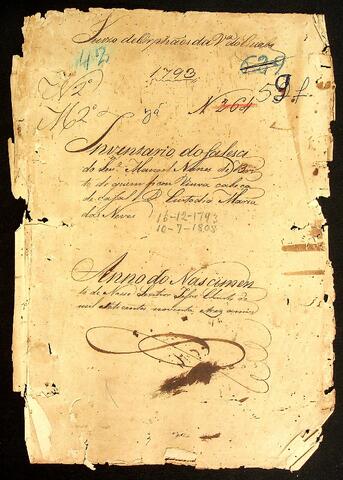 Juizo de Orphãos da Vª do
142
1793
629
59 f
Nº
Mº 2º
N. 264
Inventario do faleci
do Manoel Nunes de
de quem ficou viuva cabeça
de casal D. Custodia Maria
das Neves
16-12-1793
10-7-1808
Anno do Nascimen
to de Nosso Senhor Jesus Christo de
mil sete centos noventa e tres annos